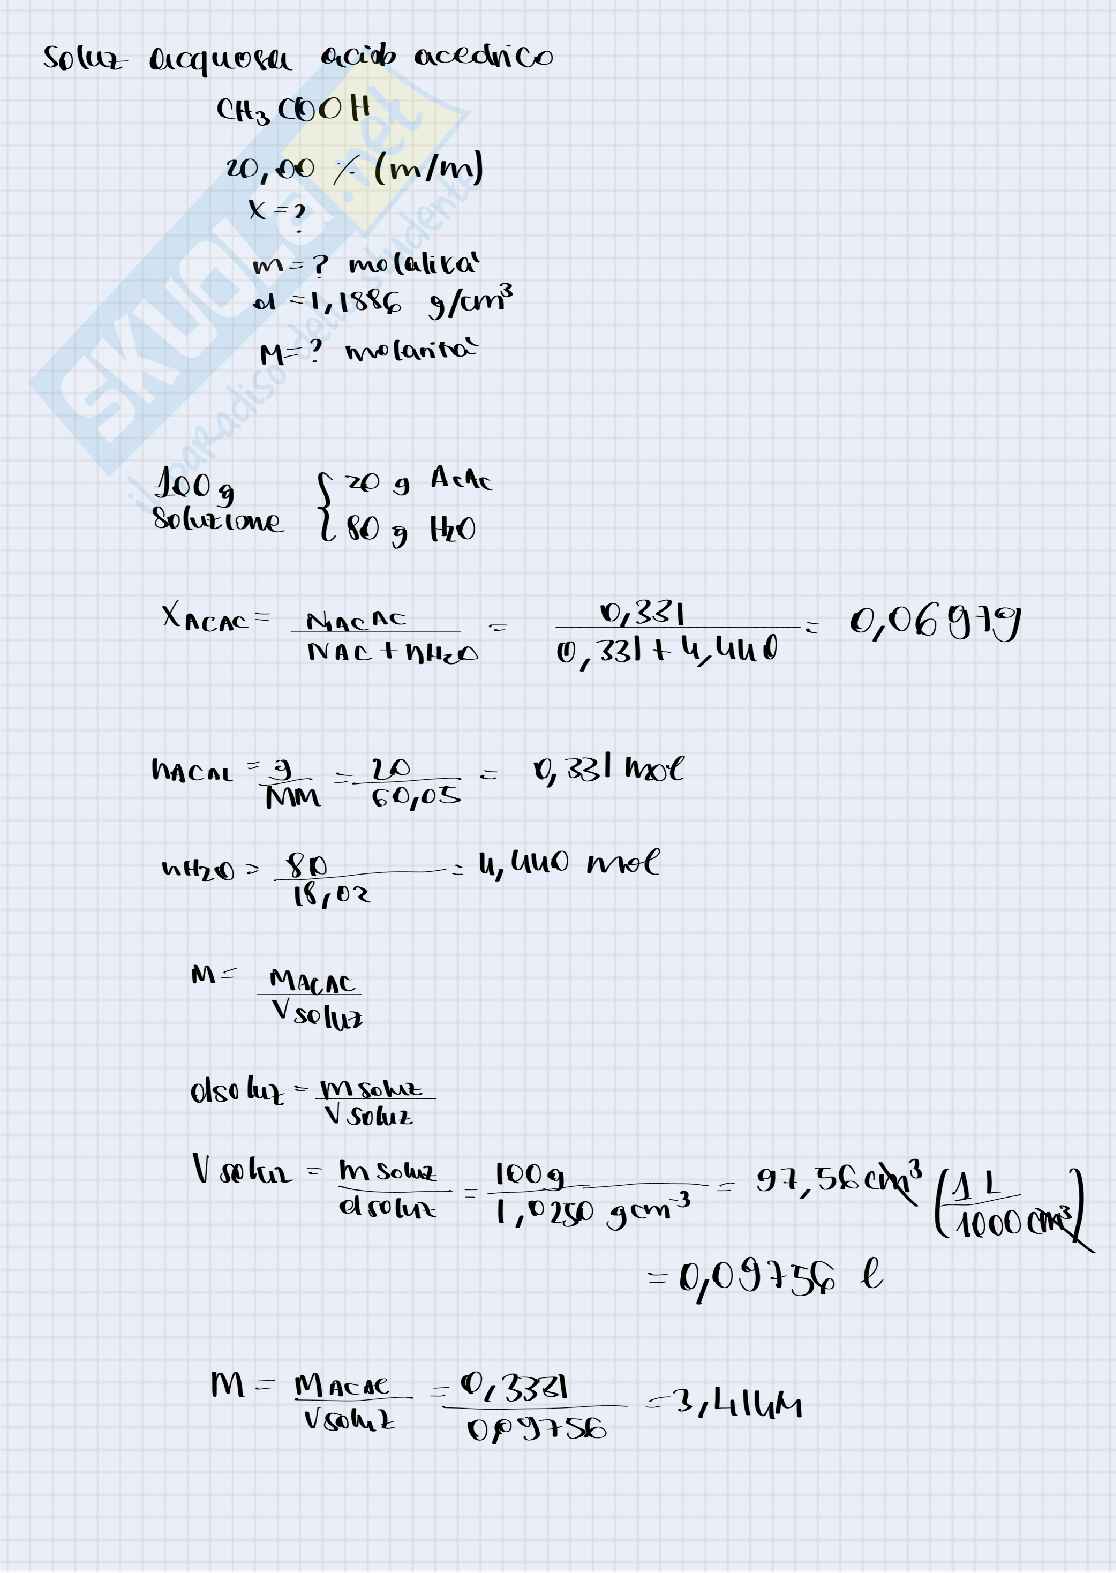 soluz acquosa acido acedrico
CH3COOH
20,00 % (m/m)
X = ?
m = ? molalità
d = 1,1886 g/cm³
M = ? molarità
100g { 20 g AcAc
soluzione { 80 g H2O
XACAC = NACAC / NAC + nH2O = 0,331 / 0,331 + 4,440 = 0,06979
nACAC = g / MM = 20 / 60,05 = 0,331 mol
nH2O = 80 / 18,02 = 4,440 mol
M = MACAC / V soluz
dsoluz = m soluz / V soluz
V soluz = m soluz / dsoluz = 100g / 1,0250 g cm⁻³ = 97,56 cm³ (1 L / 1000 cm³)
= 0,09756 l
M = MACAC / Vsoluz = 0,3331 / 0,09756 = 3,414M
SKUOLA.net
il paradiso dello studente